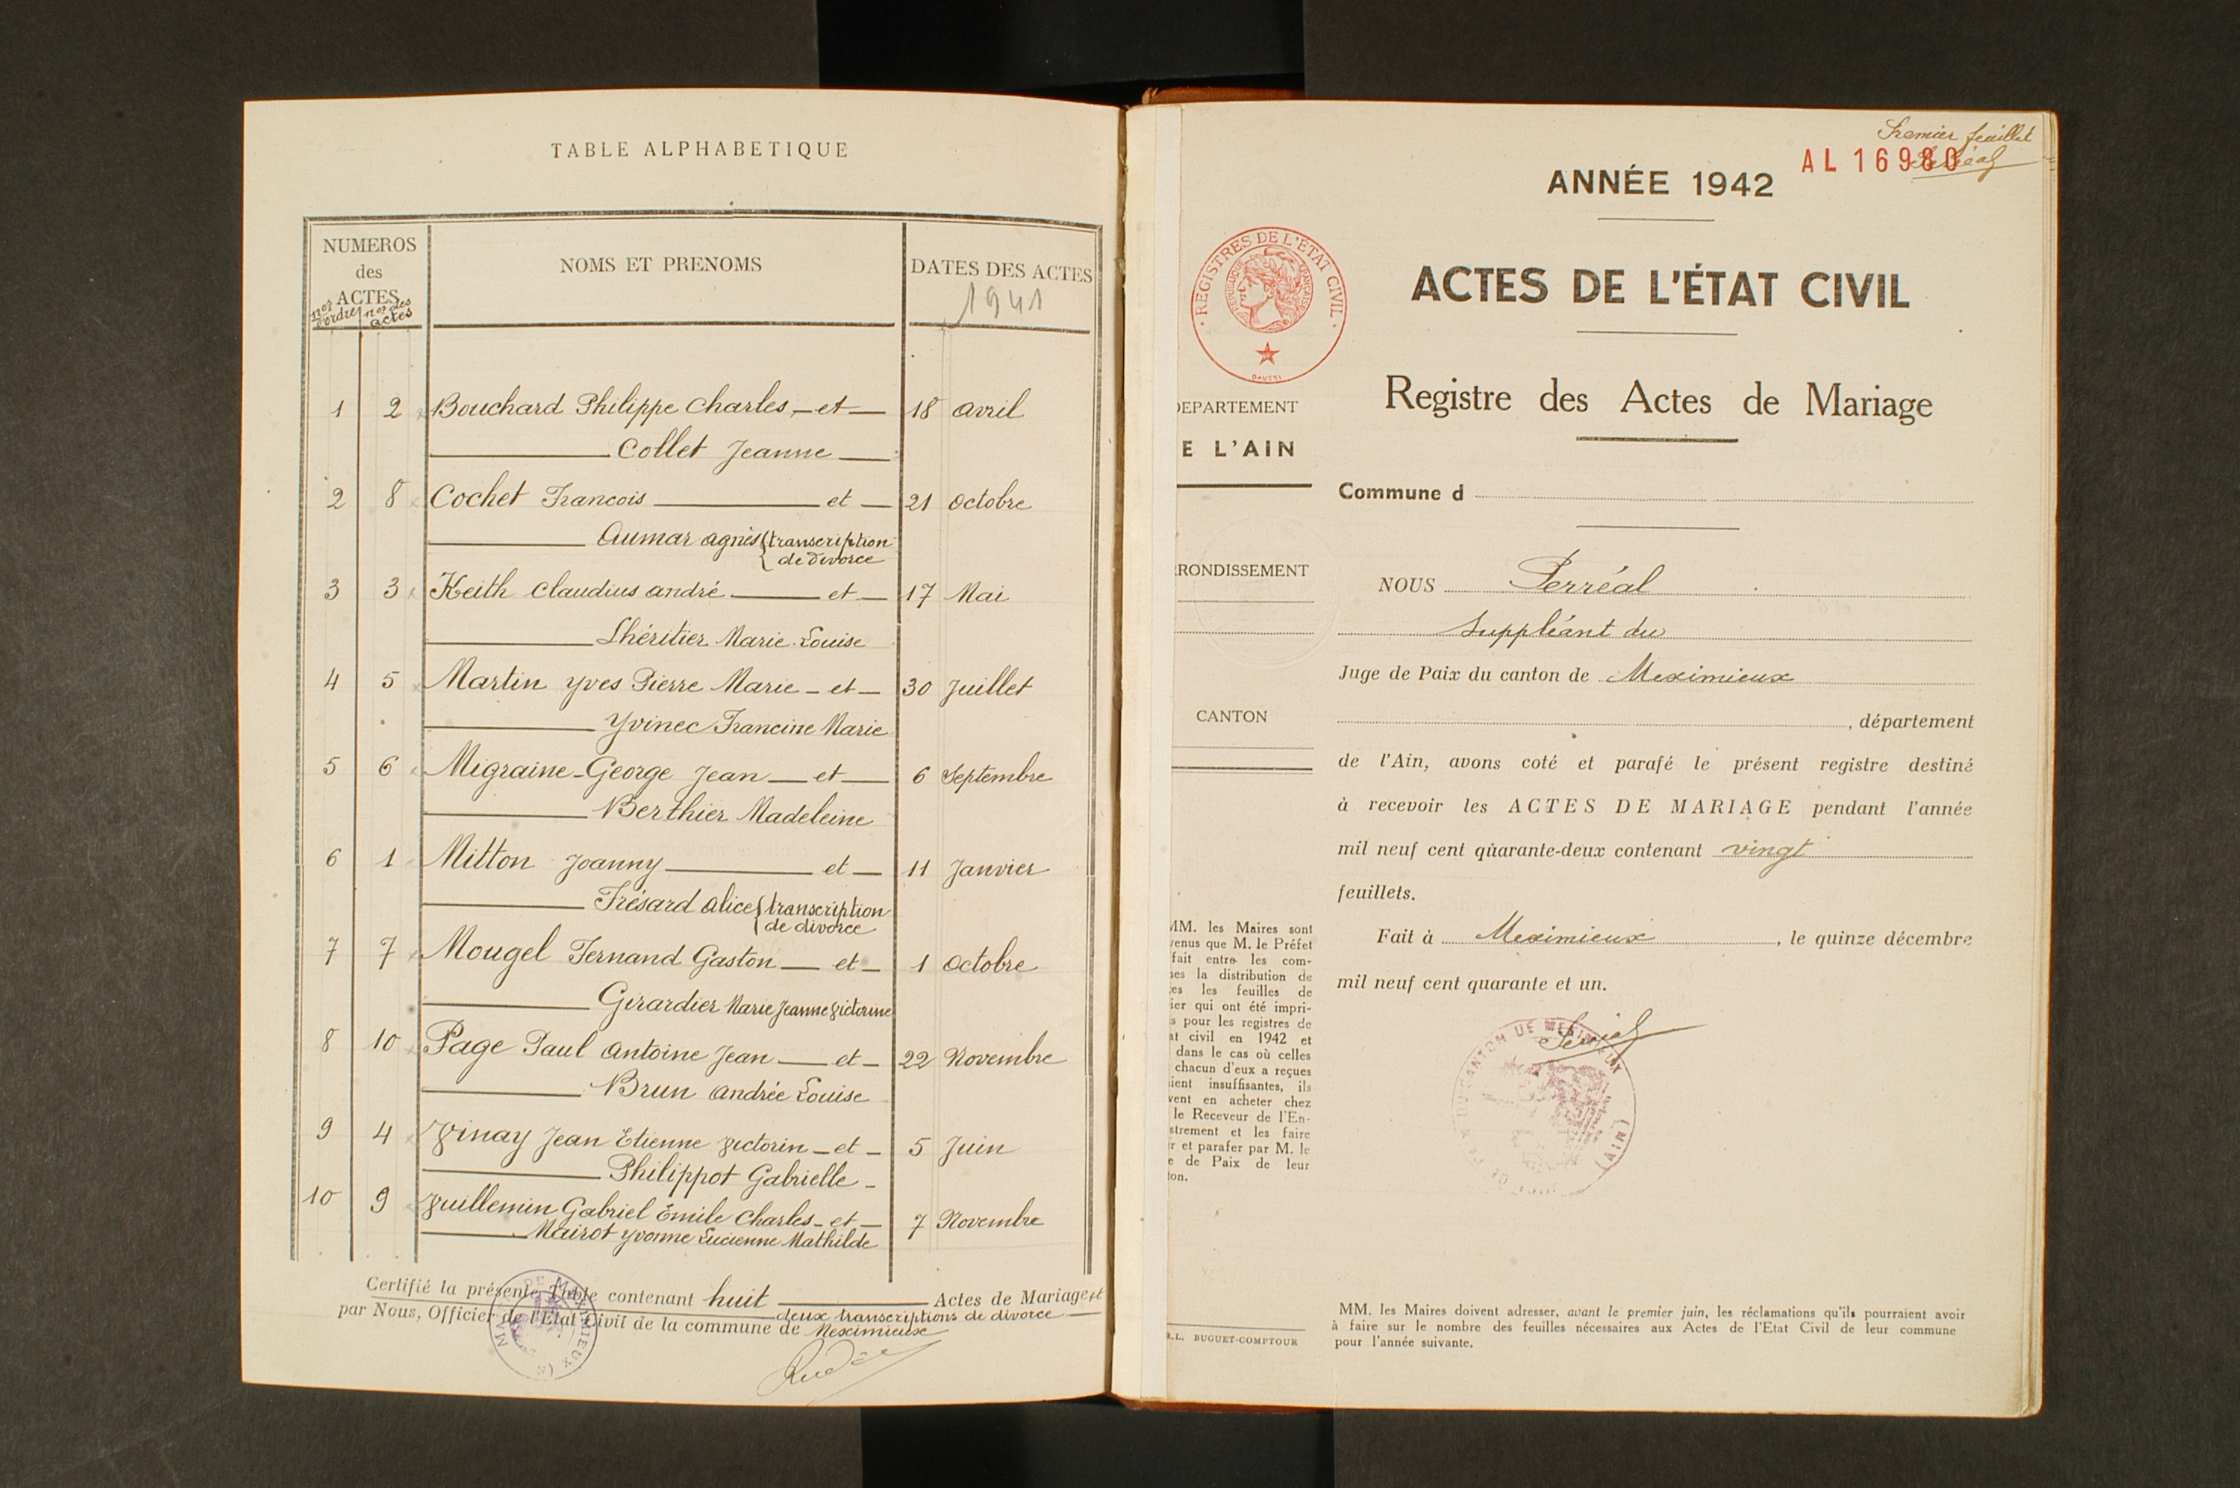 TABLE ALPHABETIQUE
NUMEROS
des
ACTES
nos d'ordre nos des actes
NOMS ET PRENOMS
DATES DES ACTES
1941
1 2 Bouchard Philippe Charles, - et - 18 avril
Collet Jeanne
2 8 Cochet Francois et 21 Octobre
Aumar agnès { transcription
de divorce
3 3 Keith Claudius andré et 17 Mai
Lhéritier Marie-Louise
4 5 Martin Yves Pierre Marie - et - 30 Juillet
Yvinec Francine Marie
5 6 Migraine-George Jean et 6 Septembre
Berthier Madeleine
6 1 Mitton Joanny et 11 Janvier
Frésard alice { transcription
de divorce
7 7 Mougel Fernand Gaston et 1 Octobre
Girardier Marie Jeanne Victorine
8 10 Page Paul antoine Jean et 22 Novembre
Brun andrée Louise
9 4 Vinay Jean Etienne Victorin - et - 5 Juin
Philippot Gabrielle
10 9 Vuillemin Gabriel Emile Charles - et - 7 Novembre
Mairot Yvonne Lucienne Mathilde
Certifié la présente Table contenant huit Actes de Mariage et
deux transcriptions de divorce
par Nous, Officier de l'Etat Civil de la commune de Meximieux
Premier feuillet
AL 16980
ANNÉE 1942
REGISTRES DE L'ETAT CIVIL
REPUBLIQUE FRANÇAISE
ACTES DE L'ÉTAT CIVIL
Registre des Actes de Mariage
DEPARTEMENT
E L'AIN
RONDISSEMENT
CANTON
Commune d
NOUS Perréal
Suppléant du
Juge de Paix du canton de Meximieux
, département
de l'Ain, avons coté et parafé le présent registre destiné
à recevoir les ACTES DE MARIAGE pendant l'année
mil neuf cent quarante-deux contenant vingt
feuillets.
Fait à Meximieux, le quinze décembre
mil neuf cent quarante et un.
CANTON DE MEXIMIEUX
(AIN)
MM. les Maires sont
venus que M. le Préfet
fait entre les com-
es la distribution de
es les feuilles de
ier qui ont été impri-
s pour les registres de
at civil en 1942 et
dans le cas où celles
chacun d'eux a reçues
ient insuffisantes, ils
vent en acheter chez
le Receveur de l'En-
strement et les faire
r et parafer par M. le
e de Paix de leur
ton.
R.L. BUGUET-COMPTOUR
MM. les Maires doivent adresser, avant le premier juin, les réclamations qu'ils pourraient avoir
à faire sur le nombre des feuilles nécessaires aux Actes de l'Etat Civil de leur commune
pour l'année suivante.